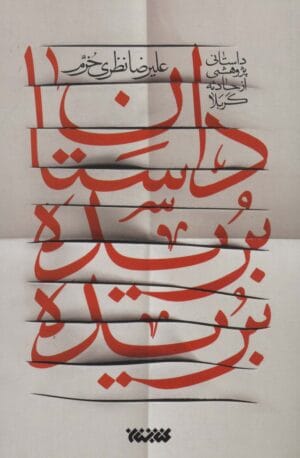 داستانی
پژوهشی
از حادثه
کربلا
علیرضا نظری خرم
داستان
بریده
بریده
کتابستان